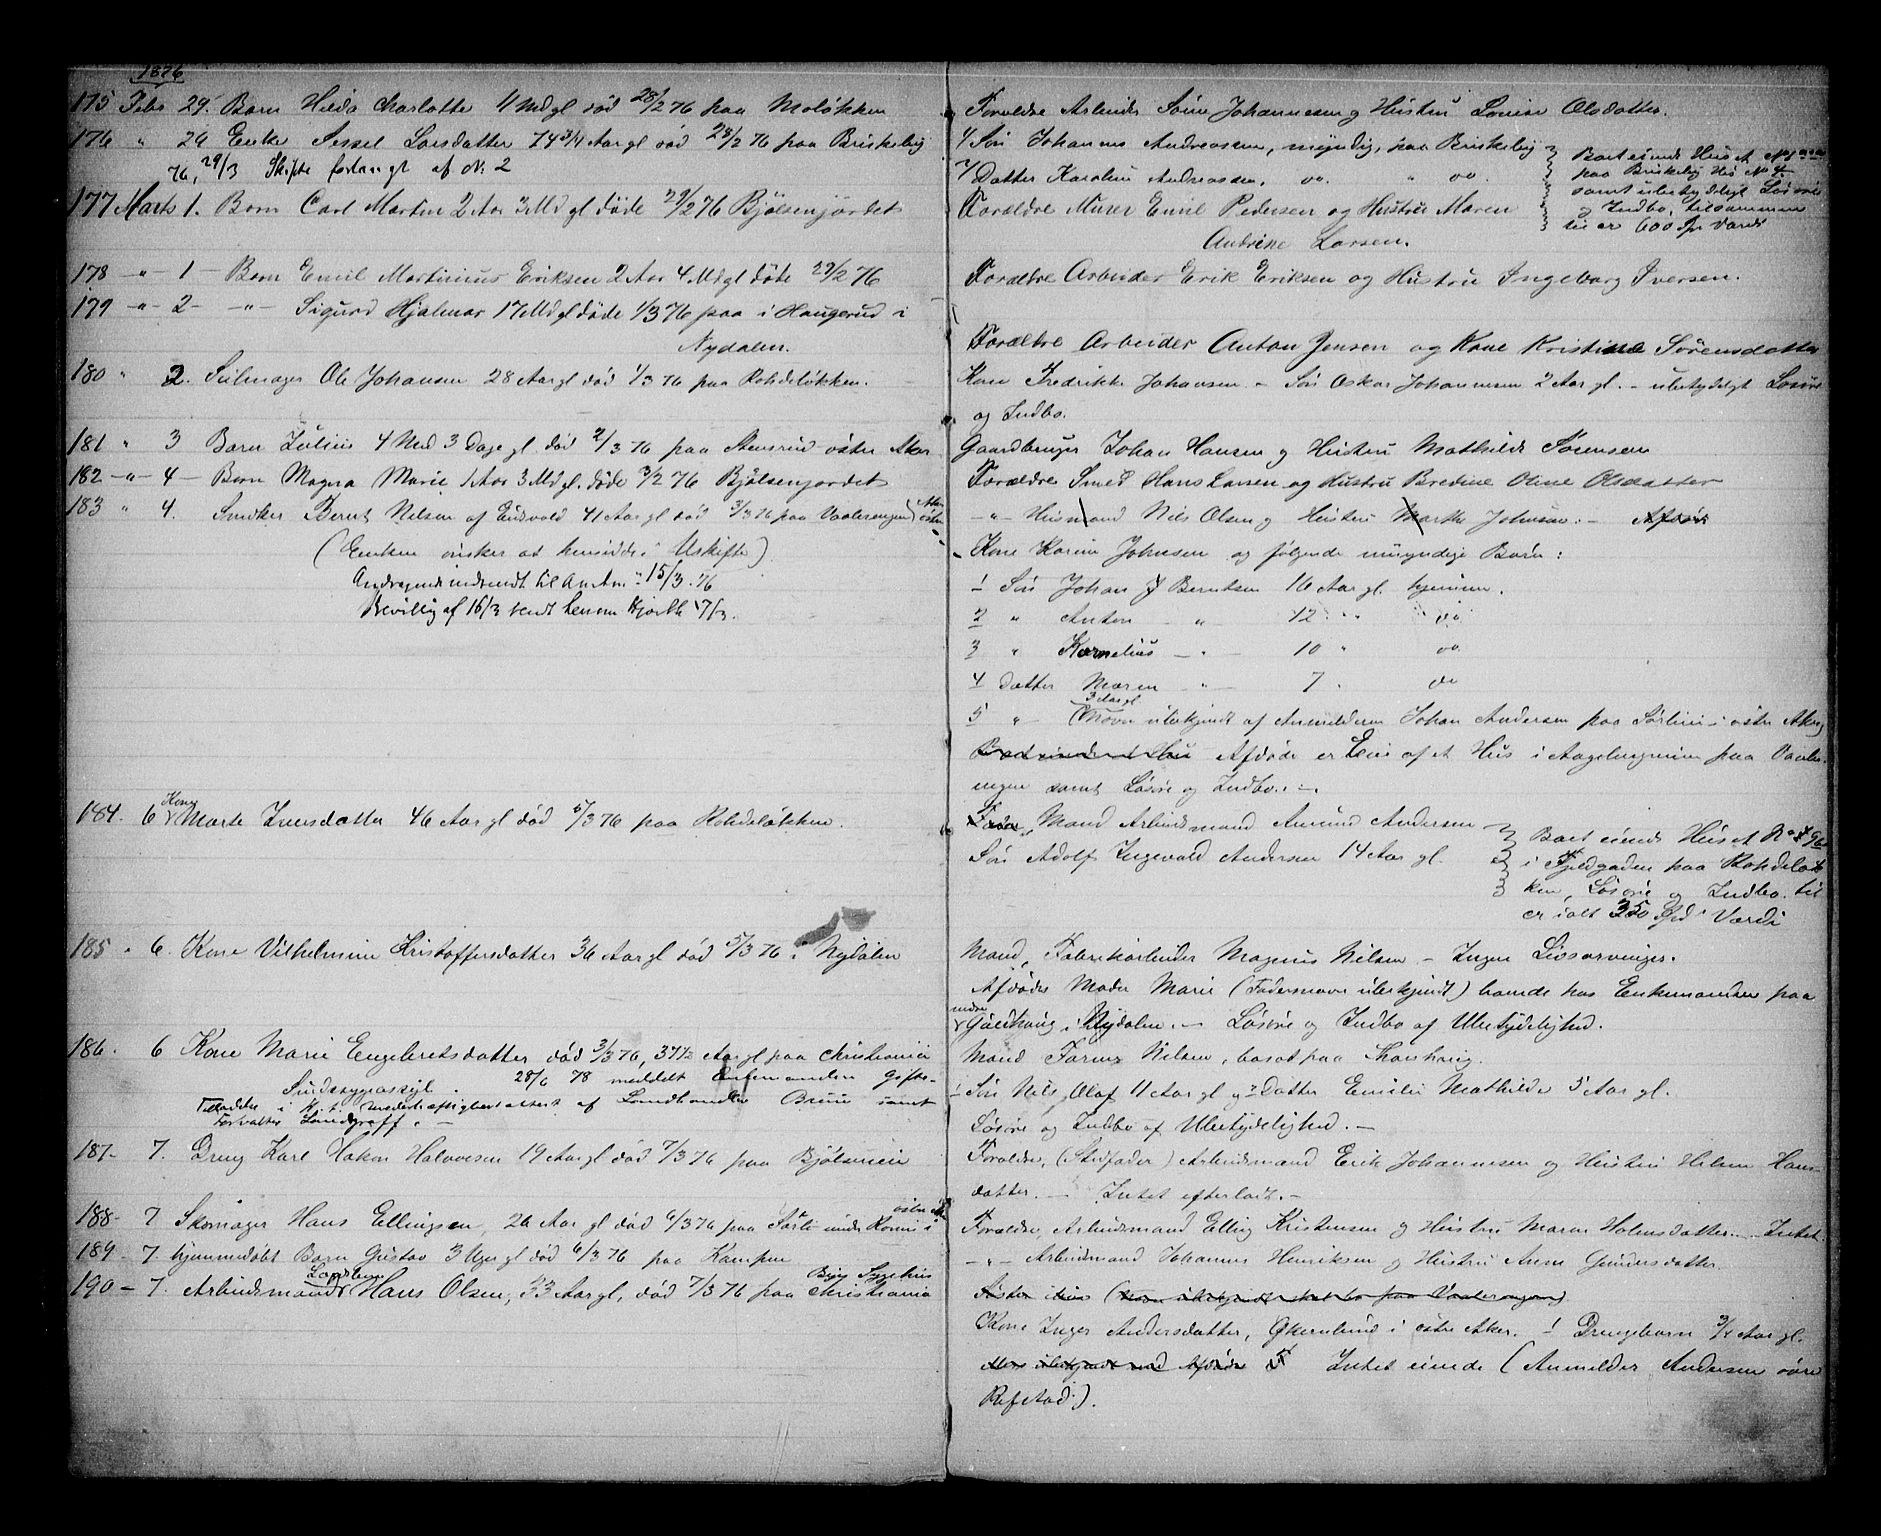 1876
175 Febr 29. Barn Hilda Charlotte 4 Md gl død 28/2 76 paa Moløkken
176 " 29 Enke Sessel Larsdatter 74 3/4 Aar gl død 28/2 76 paa Briskeby
76, 29/3 Skifte forlangt af N. 2
177 Marts 1. Barn Carl Martin 2 Aar 3 Md gl døde 29/2 76 Bjølsenjordet
178 -"- 1 - Barn Emil Martinius Eriksen 2 Aar 4 Md gl døde 29/2 76
179 -"- 2 - -"- Sigurd Hjalmar 17 Md gl døde 1/3 76 paa i Haugerud i
Nydalen.
180 " 2. Seilmager Ole Johansen 28 Aar gl død 1/3 76 paa Rohdeløkken.
181 " 3 Barn Julius 4 Md 3 Dage gl død 2/3 76 paa Stensrud østre Aker
182 -"- 4 - Barn Magna Marie 1 Aar 3 Md gl. døde 3/2 76 Bjølsenjordet
183 " 4. Snedker Bernt Nilsen af Eidsvold 41 Aar gl død 3/3 76 paa Vaalerengen østre Aker
(Enken ønsker at hensidde i Uskifte)
Andragende indsendt til Amtm. 15/3. 76
Bevillig af 16/3 sendt Lensm Hjorth 17/3.
184. 6 Kone Marte Iversdatter 46 Aar gl død 5/3 76 paa Rohdeløkken.
185 " 6. Kone Vilhelmine Kristoffersdatter 36 Aar gl død 5/3 76 i Nydalen
186. 6 Kone Marie Engebretsdatter død 3/3 76, 37 1/2 Aar gl paa Christiania
Sindssygeasyl. 28/6 78 meddelt Enkemanden Gifte-
Tilladelse i H. t. vederhæftighedsattest af Landhandler Bruun samt
Forvalter Landgraff. -
187- 7. Dreng Karl Hakon Halvorsen 19 Aar gl død 7/3 76 paa Bjølsenveien
188- 7 Skomager Hans Ellingsen, 26 Aar gl død 6/3 76 paa Sørli under Romi i østre Aker
189 - 7. hjemmedøbt Barn Gustav 3 Uger gl død 6/3 76 paa Kampen
190 - 7. Arbeidsmand Hans Olsen, 33 Aar gl, død 7/3 76 paa Christiania Byes Sygehus
Forældre Arbeider Søren Johannesen og Hustru Lovise Olsdatter.
1/ Søn Johannes Andreassen, myndig, paa Briskeby
2/ Datter Karoline Andreassen, do. " do.
Boet eiende Huset No
paa Briskeby Hs No 4
samt ubetydeligt Løsøre
og Indbo, tilsammen
til er 600 Spd Værdi
Forældre Murer Emil Pedersen og Hustru Maren
Andrine Larsen.
Forældre Arbeider Erik Eriksen og Hustru Ingeborg Iversen.
Forældre Arbeider Anton Jensen og Kone Kristine Sørensdatter
Kone Fredrikke Johansen. - Søn Oskar Johannesen 2 Aar gl. - ubetydeligt Løsøre
og Indbo.
Gaardbruger Johan Hansen og Hustru Mathilde Sørensen
Forældre Smed Hans Larsen og Hustru Bredine Oline Olsdatter
-"- Husmand Nils Olsen og Hustru Marthe Johnsen. - Afdøde
Kone Karine Johnsen og følgende umyndige Børn:
1 Søn Johan J Berntsen 16 Aar gl. hjemme.
2 " Anton - " - 12 " " do
3 " Kornelius - " - 10 " do.
4 Datter Maren - " - 7 " do
3 Aar gl
5 " (Navn ubekjendt af Anmelderen Johan Andersen paa Sørlien i østre Aker)
Afdøde er Eier af et Hus i Aagebergveien paa Vaaler-
engen samt Løsøre og Indbo. -
Mand Arbeidsmand Amund Andersen
Søn Adolf Ingevald Andersen 14 Aar gl.
Boet eiende Huset No
i Fjeldgaden paa Rohdeløk-
ken, Løsøre og Indbo til
er i alt 350 Spd Værdi
Mand, Fabrikarbeider Magnus Nilsen - Ingen Livsarvinger.
Afdødes Moder Marie (Fadersnavn ubekjendt) boende hos Enkemanden paa
nedre Guldhaug i Nydalen. - Løsøre og Indbo af Ubetydelighed.
Mand Nilsen, bosat paa
1 Søn Nils Olaf 11 Aar gl og 2 Datter Emilie Mathilde 5 Aar gl.
Løsøre og Indbo af Ubetydelighed. -
Forældre, (Stedfader) Arbeidsmand Erik Johannesen og Hustru Helene Hans-
datter. - Intet efterladt. -
Forældre, Arbeidsmand Elling Kristensen og Hustru Maren Halvorsdatter. - Intet.
-"- Arbeidsmand Johannes Henriksen og Hustru Anne Gundersdatter.
Kone Inger Andersdatter, Økernlund i østre Aker. 1 Drengebarn 3/4 Aar gl.
Intet eiende (Anmelder Andersen øvre
Refstad).